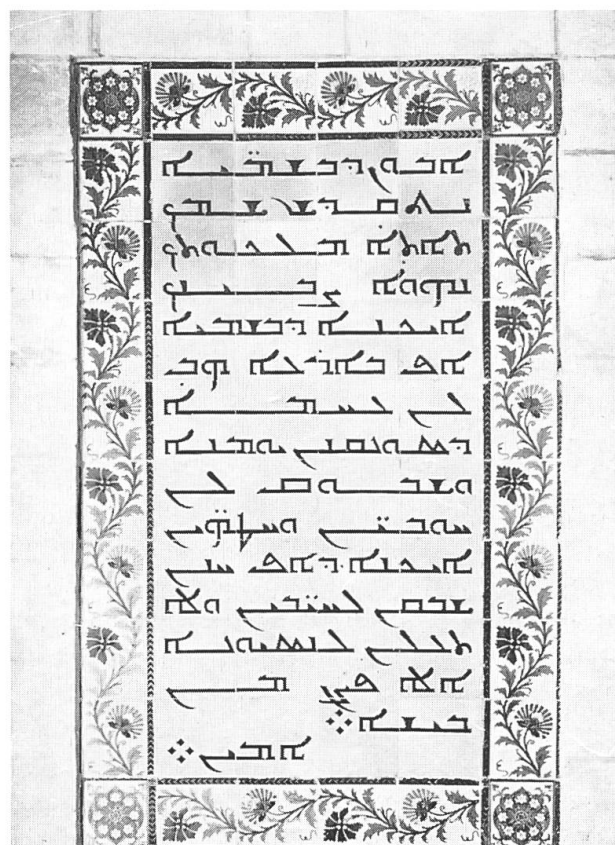 ܐܒܘܢ ܕܒܫܡ̈ܝܐ
ܢܬܩܕܫ ܫܡܟ
ܬܐܬܐ ܡܠܟܘܬܟ
ܢܗܘܐ ܨܒܝܢܟ
ܐܝܟܢܐ ܕܒܫܡܝܐ
ܐܦ ܒܐܪܥܐ ܗܒ
ܠܢ ܠܚܡܐ
ܕܣܘܢܩܢܢ ܝܘܡܢܐ
ܘܫܒܘܩ ܠܢ
ܚܘܒܝ̈ܢ ܘܚܛܗ̈ܝܢ
ܐܝܟܢܐ ܕܐܦ ܚܢܢ
ܫܒܩܢ ܠܚܝ̈ܒܝܢ ܘܠܐ
ܬܥܠܢ ܠܢܣܝܘܢܐ
ܐܠܐ ܦܨܢ ܡܢ
ܒܝܫܐ ܀
ܐܡܝܢ ܀